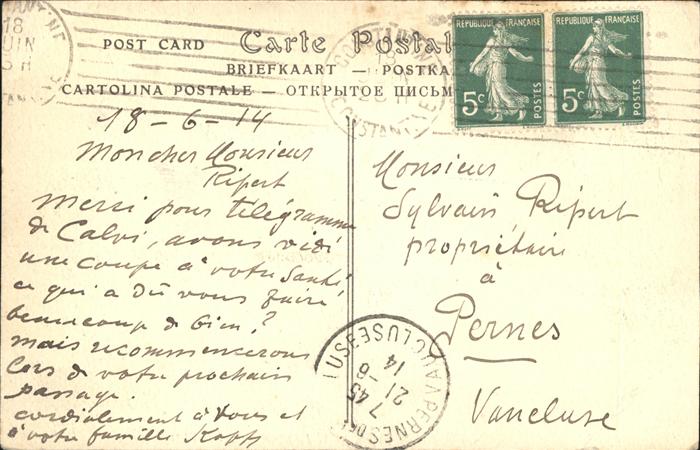 POST CARD
Carte Postale
BRIEFKAART — POSTKA
CARTOLINA POSTALE — ОТКРЫТОЕ ПИСЬМ
RÉPUBLIQUE FRANÇAISE
5c
POSTES
RÉPUBLIQUE FRANÇAISE
5c
POSTES
CONSTANTINE
18
CONSTANTINE
18-6-14
Mon cher Monsieur
Ripert
Merci pour télégramme
de Calvi, avons vidé
une coupe à votre santé
ce qui a dû vous faire
beaucoup de bien?
Mais recommencerons
lors de votre prochain
passage.
cordialement à vous et
à votre famille
Monsieur
Sylvain Ripert
propriétaire
à
Pernes
Vaucluse
PERNES
VAUCLUSE
7 45
21-6
14